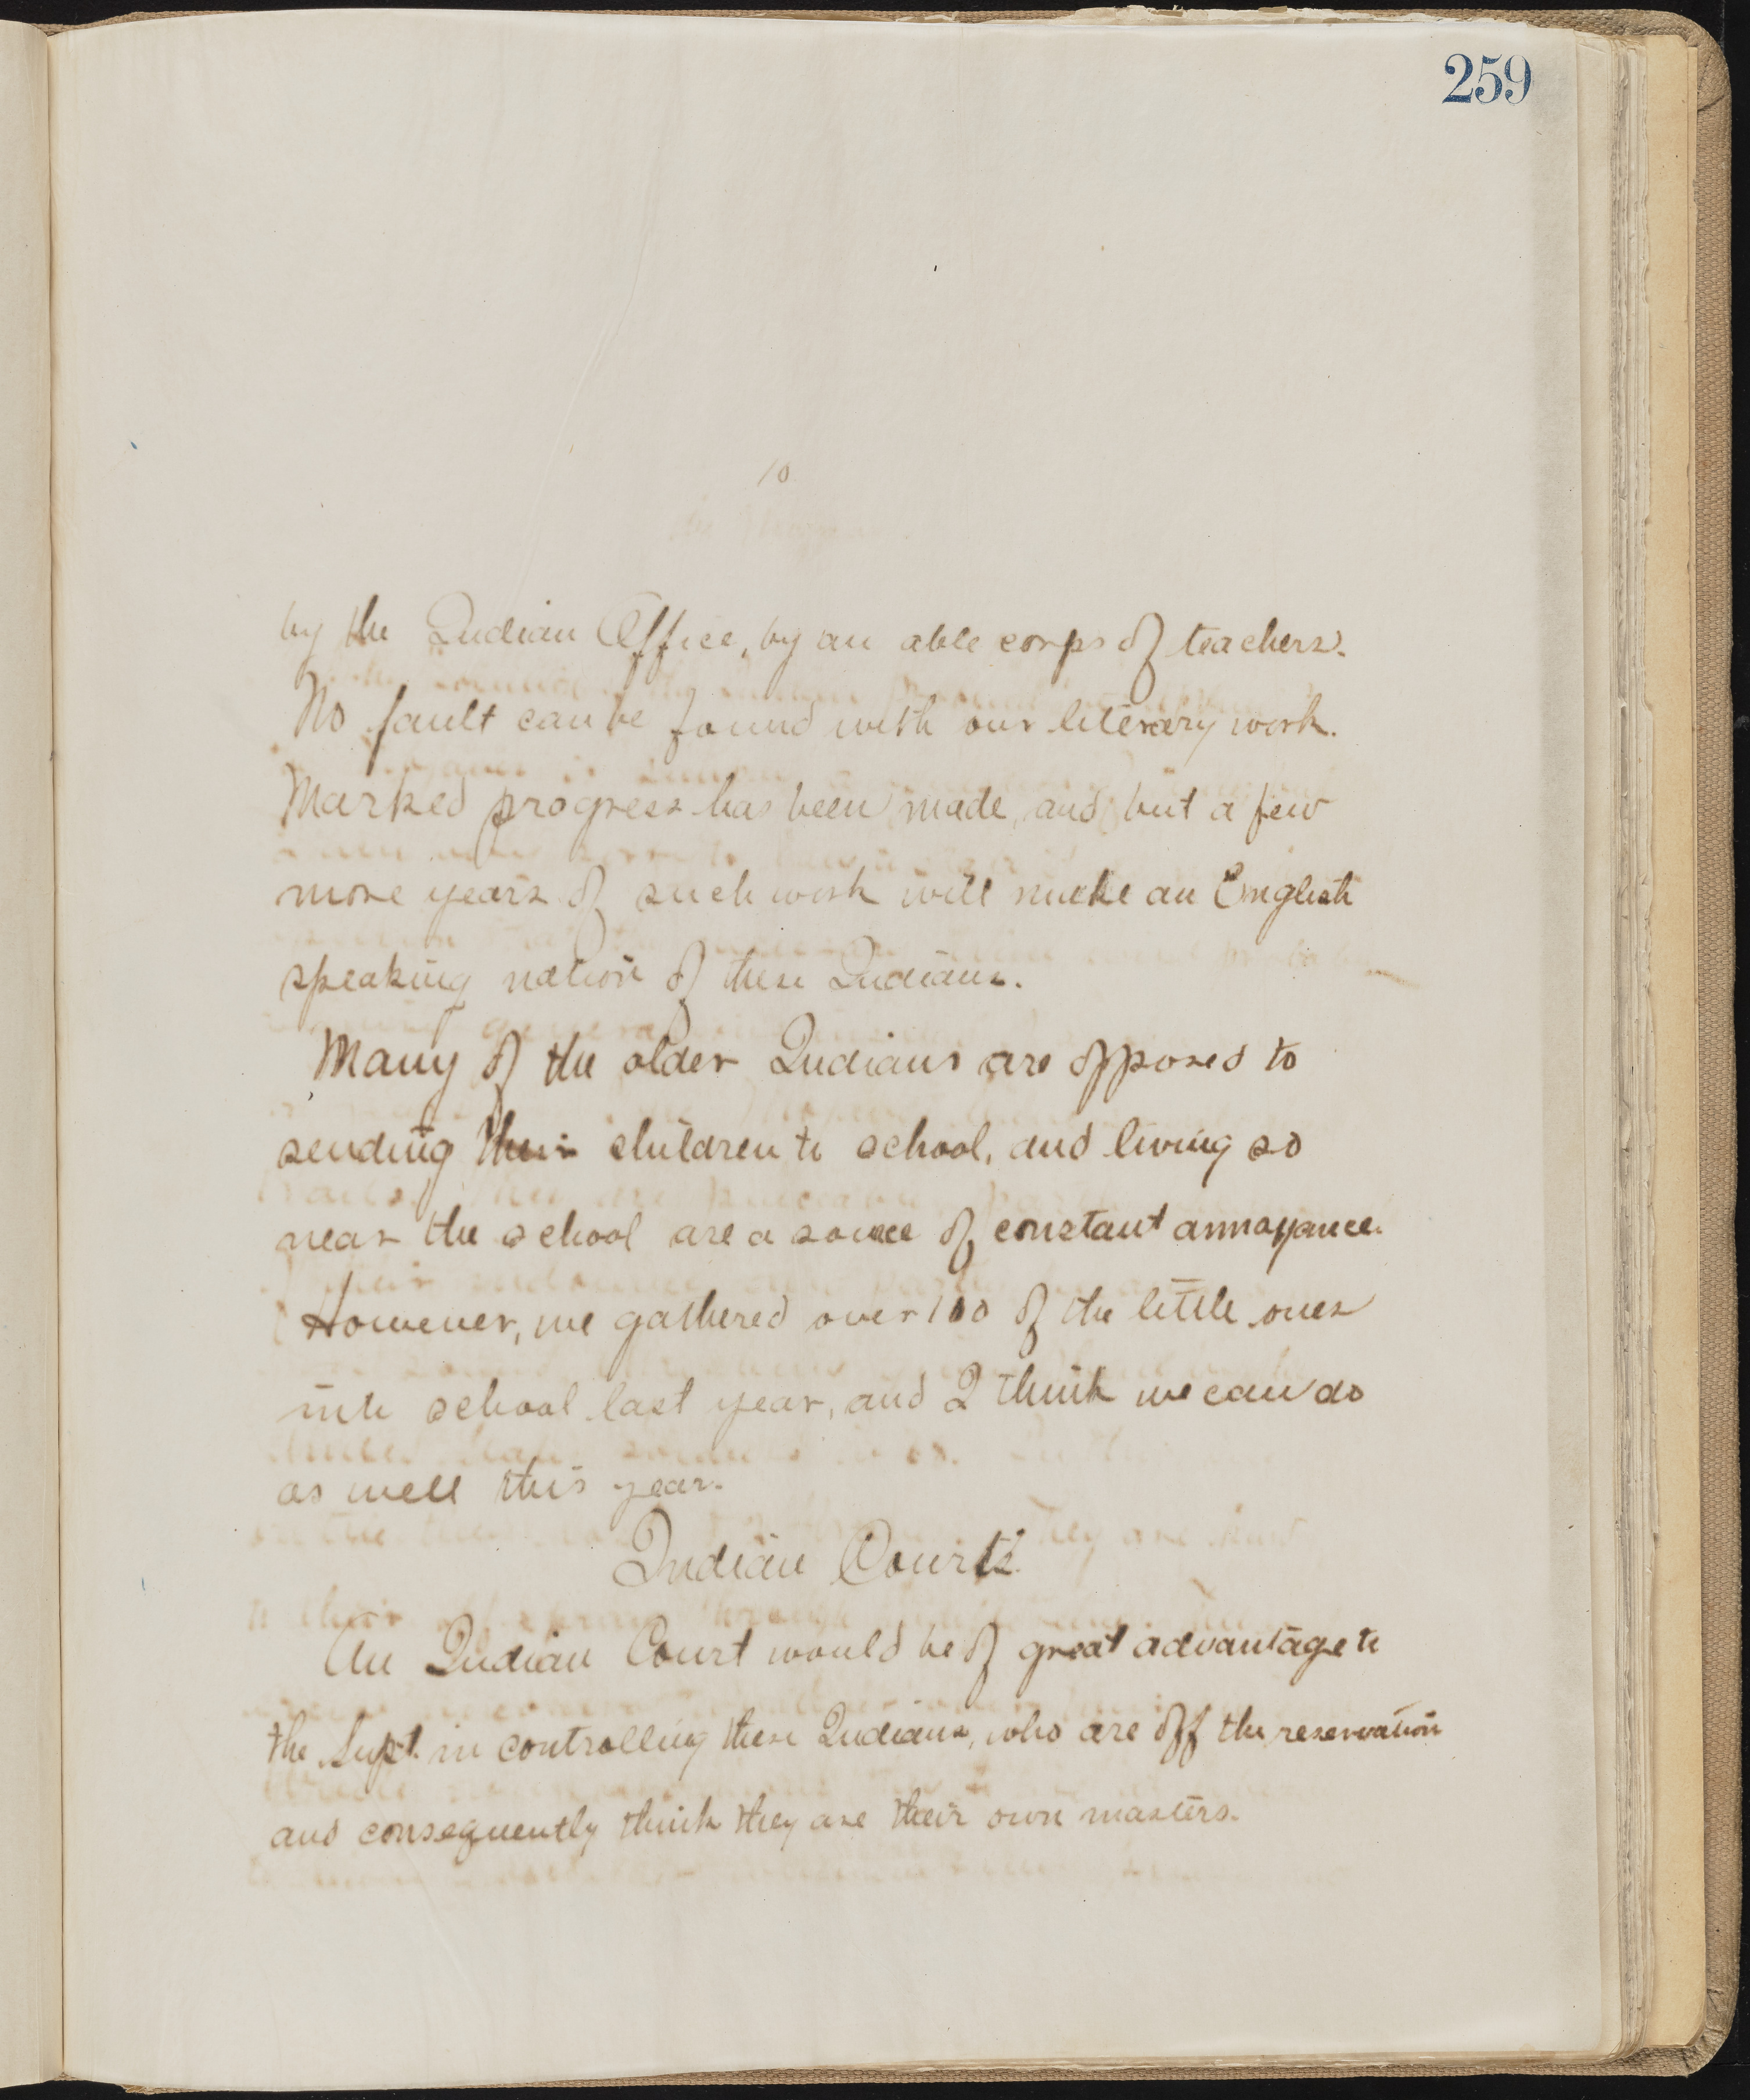 259
10
by the Indian Office, by an able corps of teachers.
No fault can be found with our literary work.
Marked progress has been made, and but a few
more years of such work will make an English
speaking nation of these Indians.
Many of the older Indians are opposed to
sending their children to school, and living so
near the school are a source of constant annoyance.
However, we gathered over 100 of the little ones
into school last year, and I think we can do
as well this year.
Indian Courts.
An Indian Court would be of great advantage to
the Supt. in controlling these Indians, who are off the reservation
and consequently think they are their own masters.